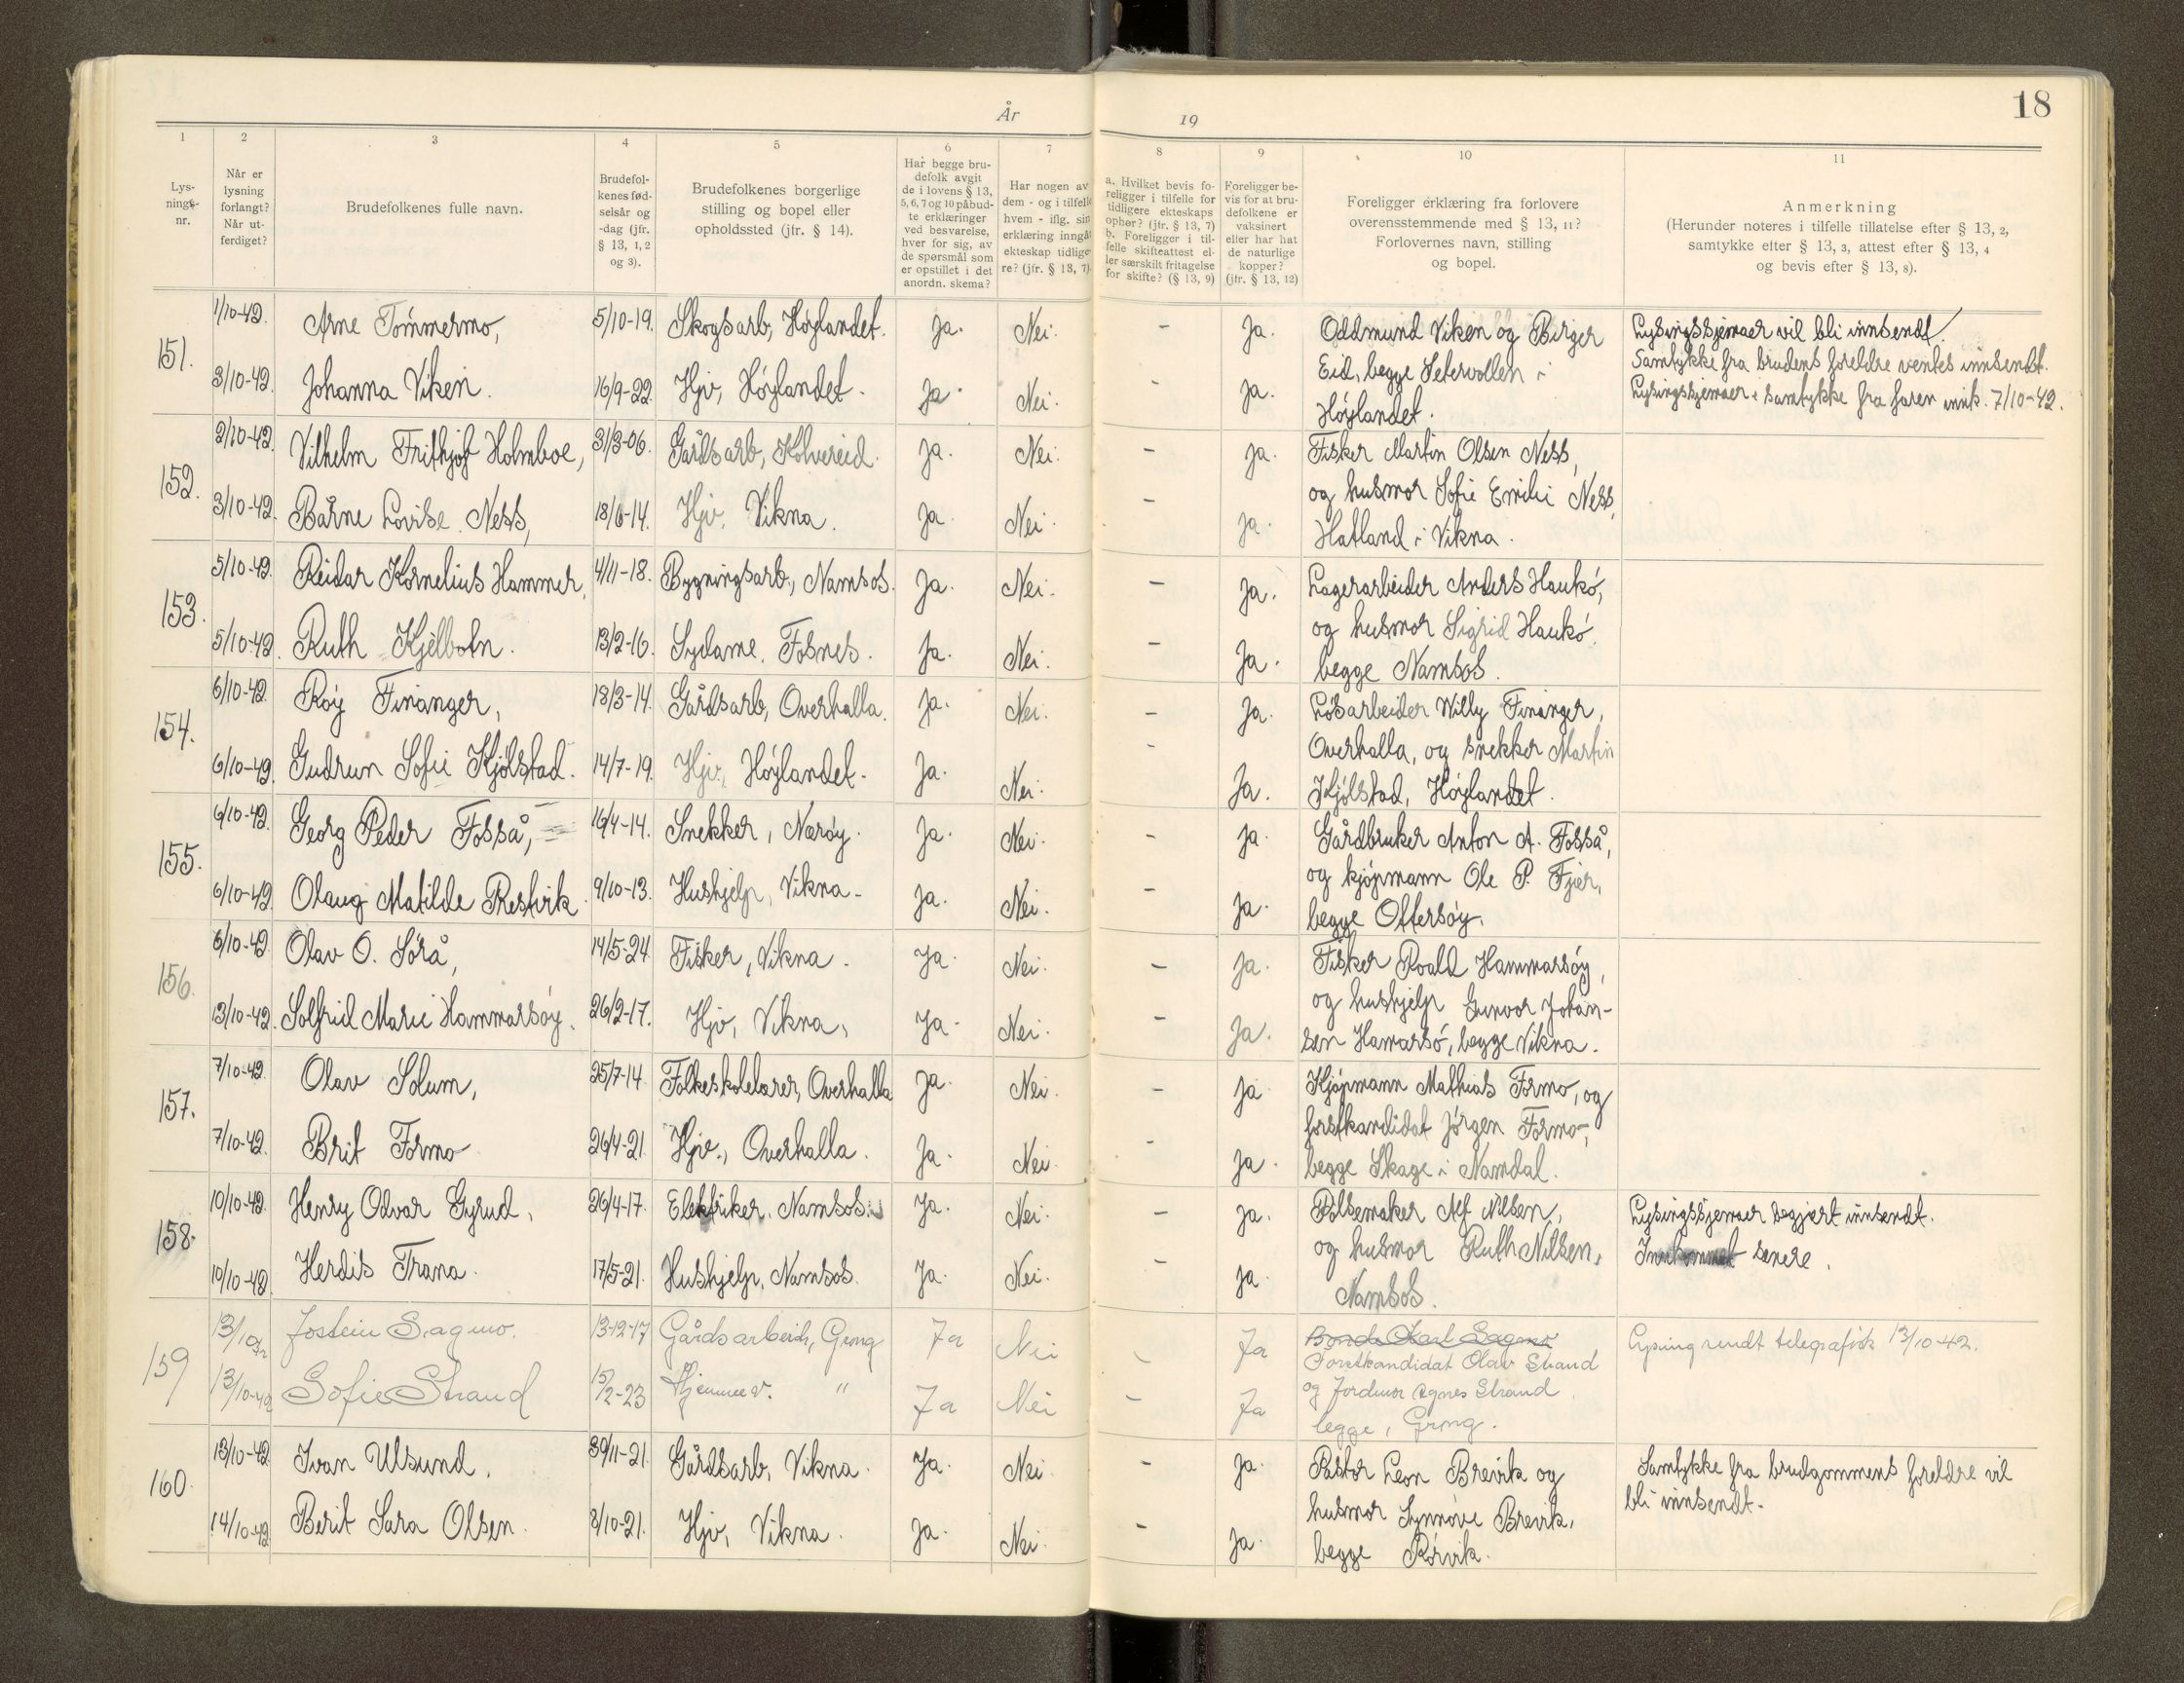 18
År
19
1
2
3
4
5
6
7
8
9
10
11
Lys-
nings-
nr.
Når er
lysning
forlangt?
Når ut-
ferdiget?
Brudefolkenes fulle navn.
Brudefol-
kenes fød-
selsår og
-dag (jfr.
§ 13, 1, 2
og 3).
Brudefolkenes borgerlige
stilling og bopel eller
opholdssted (jfr. § 14).
Har begge bru-
defolk avgit
de i lovens § 13,
5, 6, 7 og 10 påbud-
te erklæringer
ved besvarelse,
hver for sig, av
de spørsmål som
er opstillet i det
anordn. skema?
Har nogen av
dem - og i tilfelle
hvem - iflg. sin
erklæring inngåt
ekteskap tidlige-
re? (jfr. § 13, 7)
a. Hvilket bevis fo-
religger i tilfelle for
tidligere ekteskaps
ophør? (jfr. § 13, 7)
b. Foreligger i til-
felle skifteattest el-
ler særskilt fritagelse
for skifte? (§ 13, 9)
Foreligger be-
vis for at bru-
defolkene er
vaksinert
eller har hat
de naturlige
kopper?
(jfr. § 13, 12)
Foreligger erklæring fra forlovere
overensstemmende med § 13, 11?
Forlovernes navn, stilling
og bopel.
Anmerkning
(Herunder noteres i tilfelle tillatelse efter § 13, 2,
samtykke efter § 13, 3, attest efter § 13, 4
og bevis efter § 13, 8).
151.
1/10-42. Arne Tømmermo, 5/10-19. Skogsarb, Høylandet. Ja. Nei. - Ja.
3/10-42. Johanna Viken. 16/9-22. Hjv, Høylandet. Ja. Nei. - Ja.
Oddmund Viken og Birger
Eid, begge Setervollen i
Høylandet.
Lysingsskjemaer vil bli innsendt.
Samtykke fra brudens foreldre ventes innsendt.
Lysingsskjemaer + samtykke fra faren innk. 7/10-42.
152.
2/10-42. Vilhelm Frithjof Holmboe, 31/3-06. Gårdsarb, Kolvereid. Ja. Nei. - Ja.
3/10-42. Bårne Lovise Ness, 18/6-14. Hjv. Vikna. Ja. Nei. - Ja.
Fisker Martin Olsen Ness,
og husmor Sofie Emilie Ness,
Hatland i Vikna.
153.
5/10-42. Reidar Kornelius Hammer, 4/11-18. Bygningsarb., Namsos. Ja. Nei. - Ja.
5/10-42. Ruth Kjelbotn. 13/2-16. Sydame. Fosnes. Ja. Nei. - Ja.
Lagerarbeider Anders Haukø,
og husmor Sigrid Haukø.
begge Namsos.
154.
6/10-42. Roy Finanger, 18/3-14. Gårdsarb, Overhalla. Ja. Nei. - Ja.
6/10-42. Gudrun Sofie Kjølstad. 14/7-19. Hjv, Høylandet. Ja. Nei. - Ja.
Løsarbeider Willy Finanger,
Overhalla, og snekker Martin
Kjølstad, Høylandet.
155.
6/10-42. Georg Peder Fosså, 16/4-14. Snekker, Nærøy. Ja. Nei. - Ja.
6/10-42. Olaug Matilde Prestvik. 9/10-13. Hushjelp, Vikna. Ja. Nei. - Ja.
Gårdbruker Anton A. Fosså,
og kjøpmann Ole P. Fjær,
begge Ottersøy.
156.
6/10-42. Olav O. Sørå, 14/5-24. Fisker, Vikna. Ja. Nei. - Ja.
13/10-42. Solfrid Marie Hammarsøy. 26/2-17. Hjv, Vikna, Ja. Nei. - Ja.
Fisker Roald Hammarsøy,
og hushjelp Gunvor Johan-
sen Hamarsø, begge Vikna.
157.
7/10-42. Olav Solum, 25/7-14. Folkeskolelærer, Overhalla Ja. Nei. - Ja
7/10-42. Brit Formo 26/4-21. Hjv., Overhalla. Ja. Nei. - Ja.
Kjøpmann Mathias Formo, og
forstkandidat Jørgen Formo,
begge Skage i Namdal.
158.
10/10-42. Henry Odvar Gyrud, 26/4-17. Elektriker. Namsos. Ja. Nei. - Ja.
10/10-42. Herdis Trana. 17/5-21. Hushjelp, Namsos. Ja. Nei. - Ja.
Pølsemaker Alf Nilsen,
og husmor Ruth Nilsen,
Namsos.
Lysingsskjemaer begjært innsendt.
Innkommet senere.
159
13/10-42 Jostein Sagmo. 13-12-17 Gårdsarbeider, Grong Ja Nei - Ja
13/10-42 Sofie Strand 15/2-23 Hjemmev. " Ja Nei - Ja
Bonde Karl Sagmo
Forstkandidat Olav Strand
og Jordmor Agnes Strand
begge, Grong.
Lysing sendt telegrafisk 13/10-42.
160.
13/10-42 Ivan Ulsund, 30/11-21. Gårdsarb, Vikna. Ja. Nei. - Ja.
14/10-42 Berit Sara Olsen. 8/10-21. Hjv, Vikna. Ja. Nei. - Ja.
Pastor Leon Brevik og
husmor Synnøve Brevik,
begge Rørvik.
Samtykke fra brudgommens foreldre vil
bli innsendt.